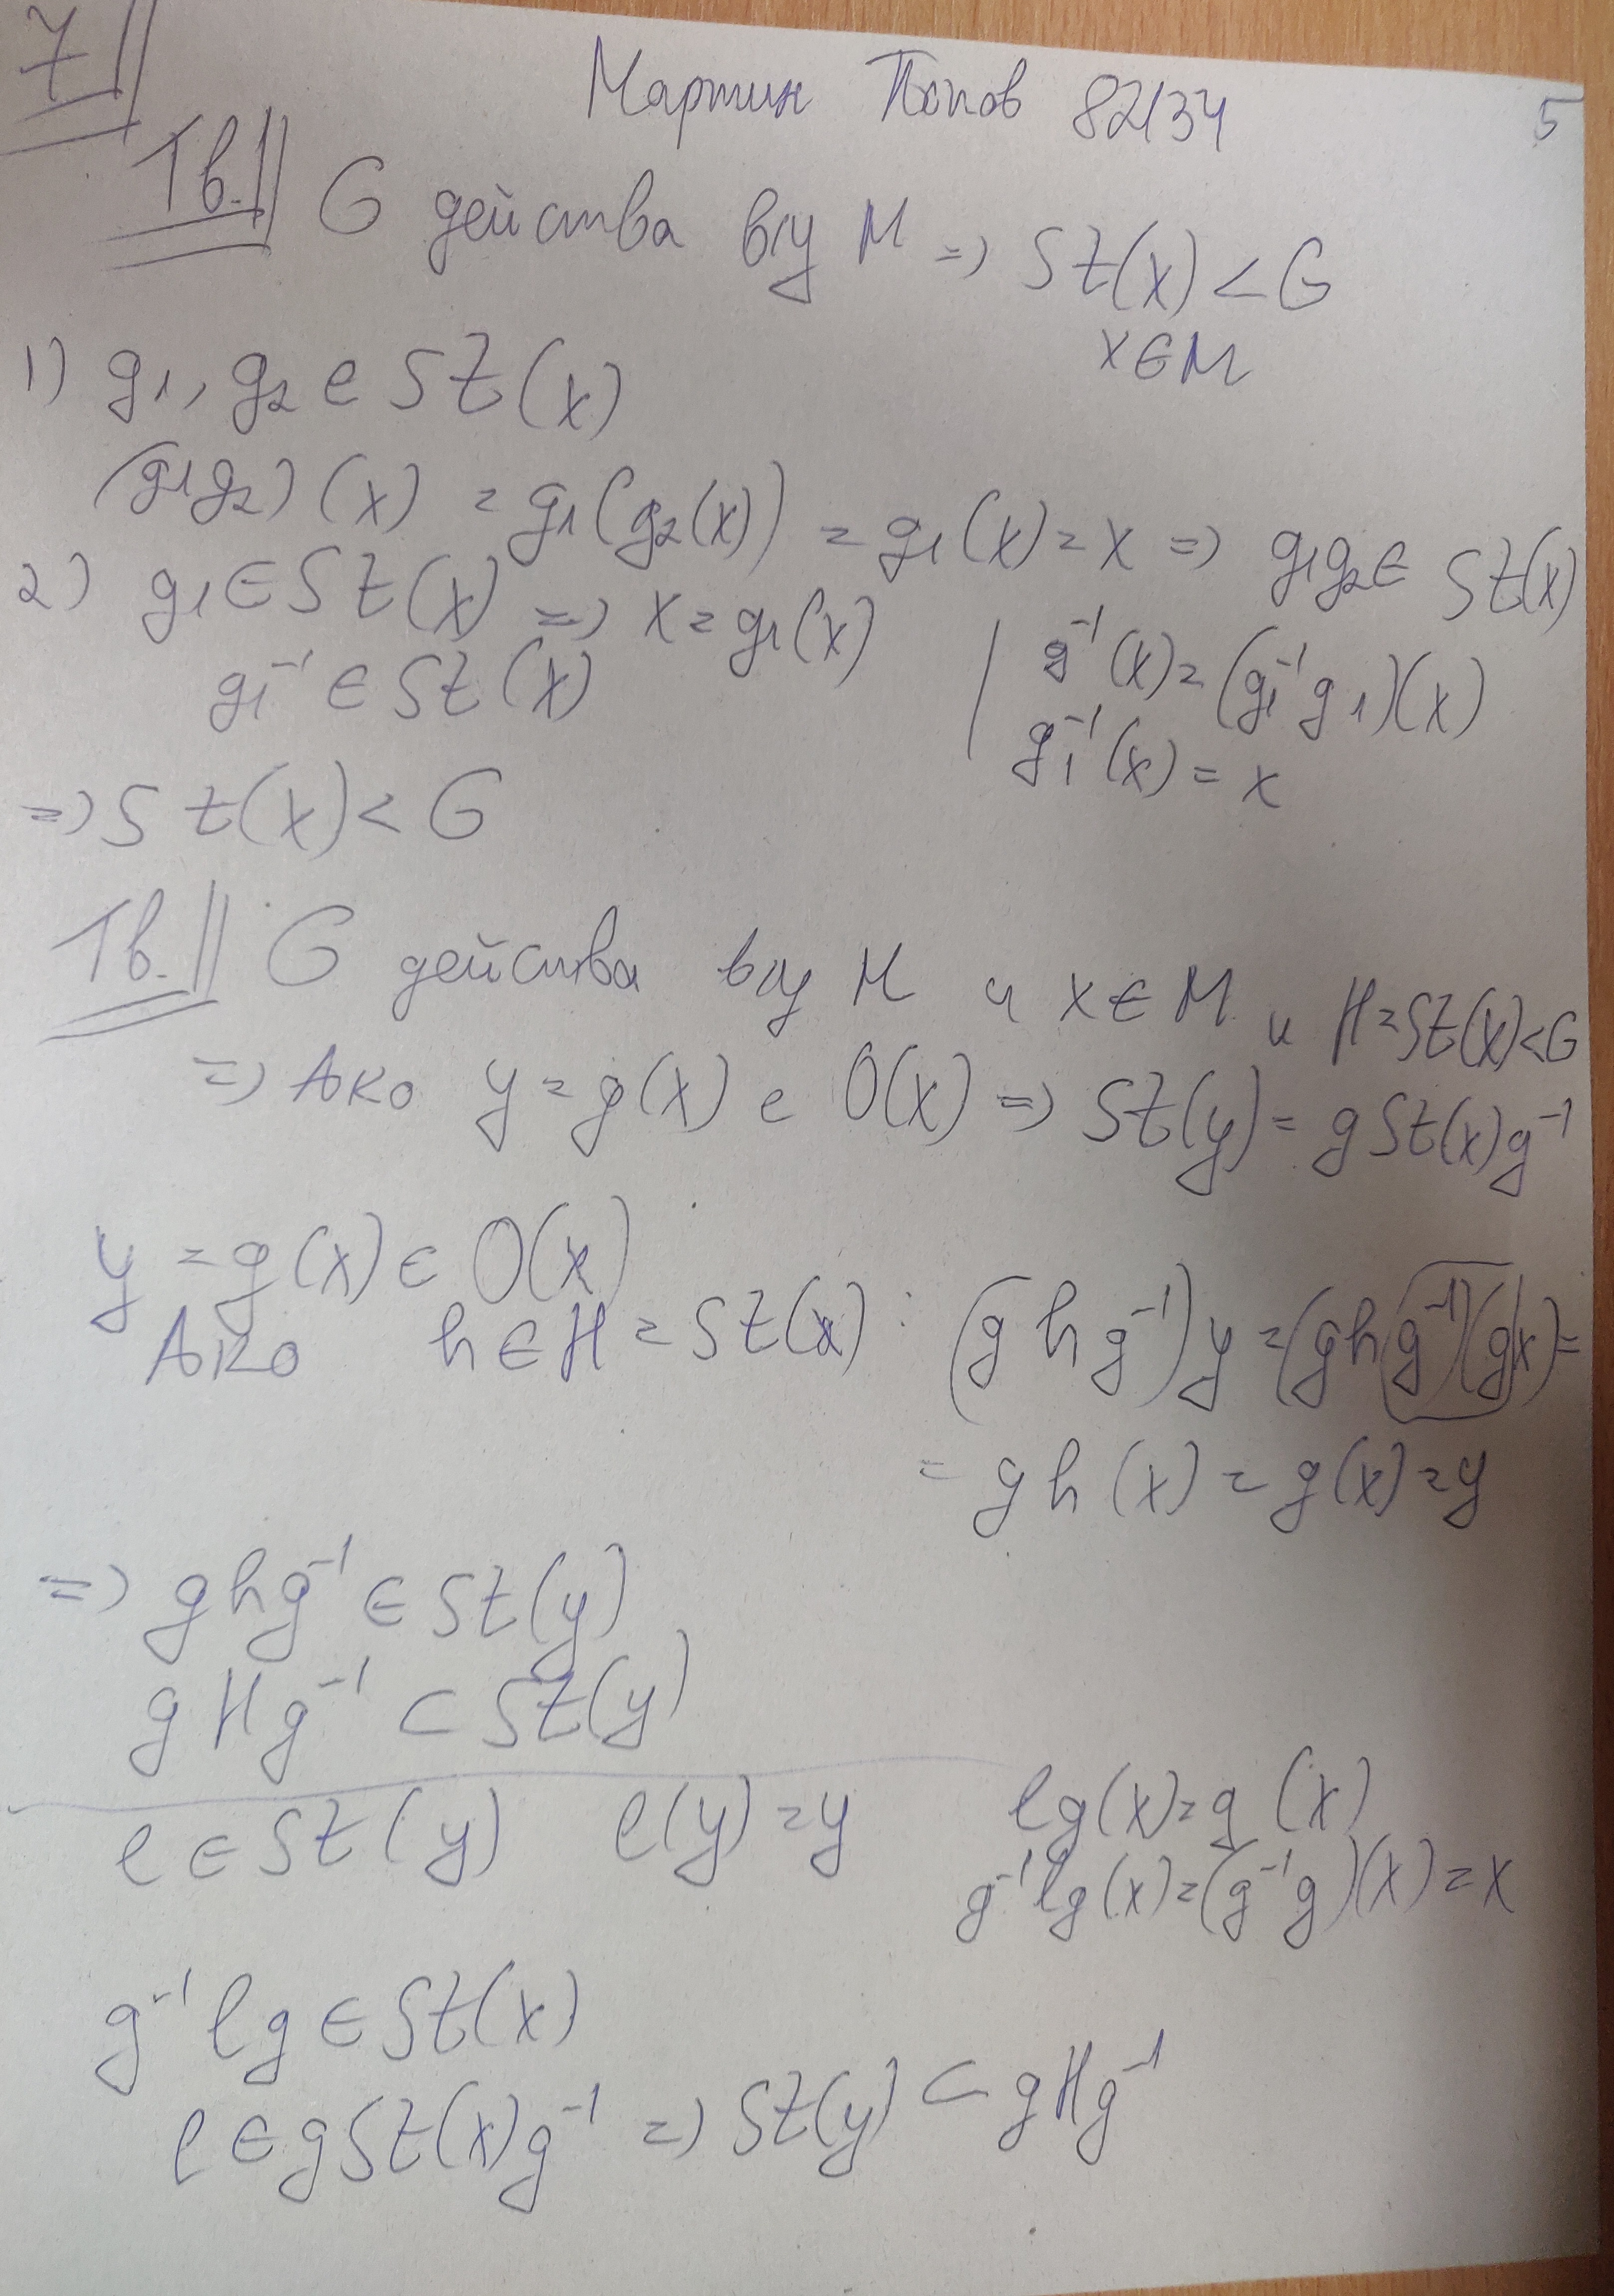 7||
Мартин Попов 82134 5
Тв.|| G действа в/у M => St(x) < G
x∈M
1) g₁, g₂ ∈ St(x)
(g₁g₂)(x) = g₁(g₂(x)) = g₁(x) = x => g₁g₂ ∈ St(x)
2) g₁ ∈ St(x) => x = g₁(x) | g⁻¹(x) = (g₁⁻¹g₁)(x)
g₁⁻¹ ∈ St(x) | g₁⁻¹(x) = x
=> St(x) < G
Тв.|| G действа в/у M и x ∈ M и H = St(x) < G
=> Ако y = g(x) ∈ O(x) => St(y) = gSt(x)g⁻¹
y = g(x) ∈ O(x)
Ако h ∈ H = St(x) : (ghg⁻¹)y = (ghg⁻¹)(gx) =
= gh(x) = g(x) = y
=> ghg⁻¹ ∈ St(y)
gHg⁻¹ ⊂ St(y)
l ∈ St(y) l(y) = y lg(x) = g(x)
g⁻¹lg(x) = (g⁻¹g)(x) = x
g⁻¹lg ∈ St(x)
l ∈ gSt(x)g⁻¹ => St(y) ⊂ gHg⁻¹